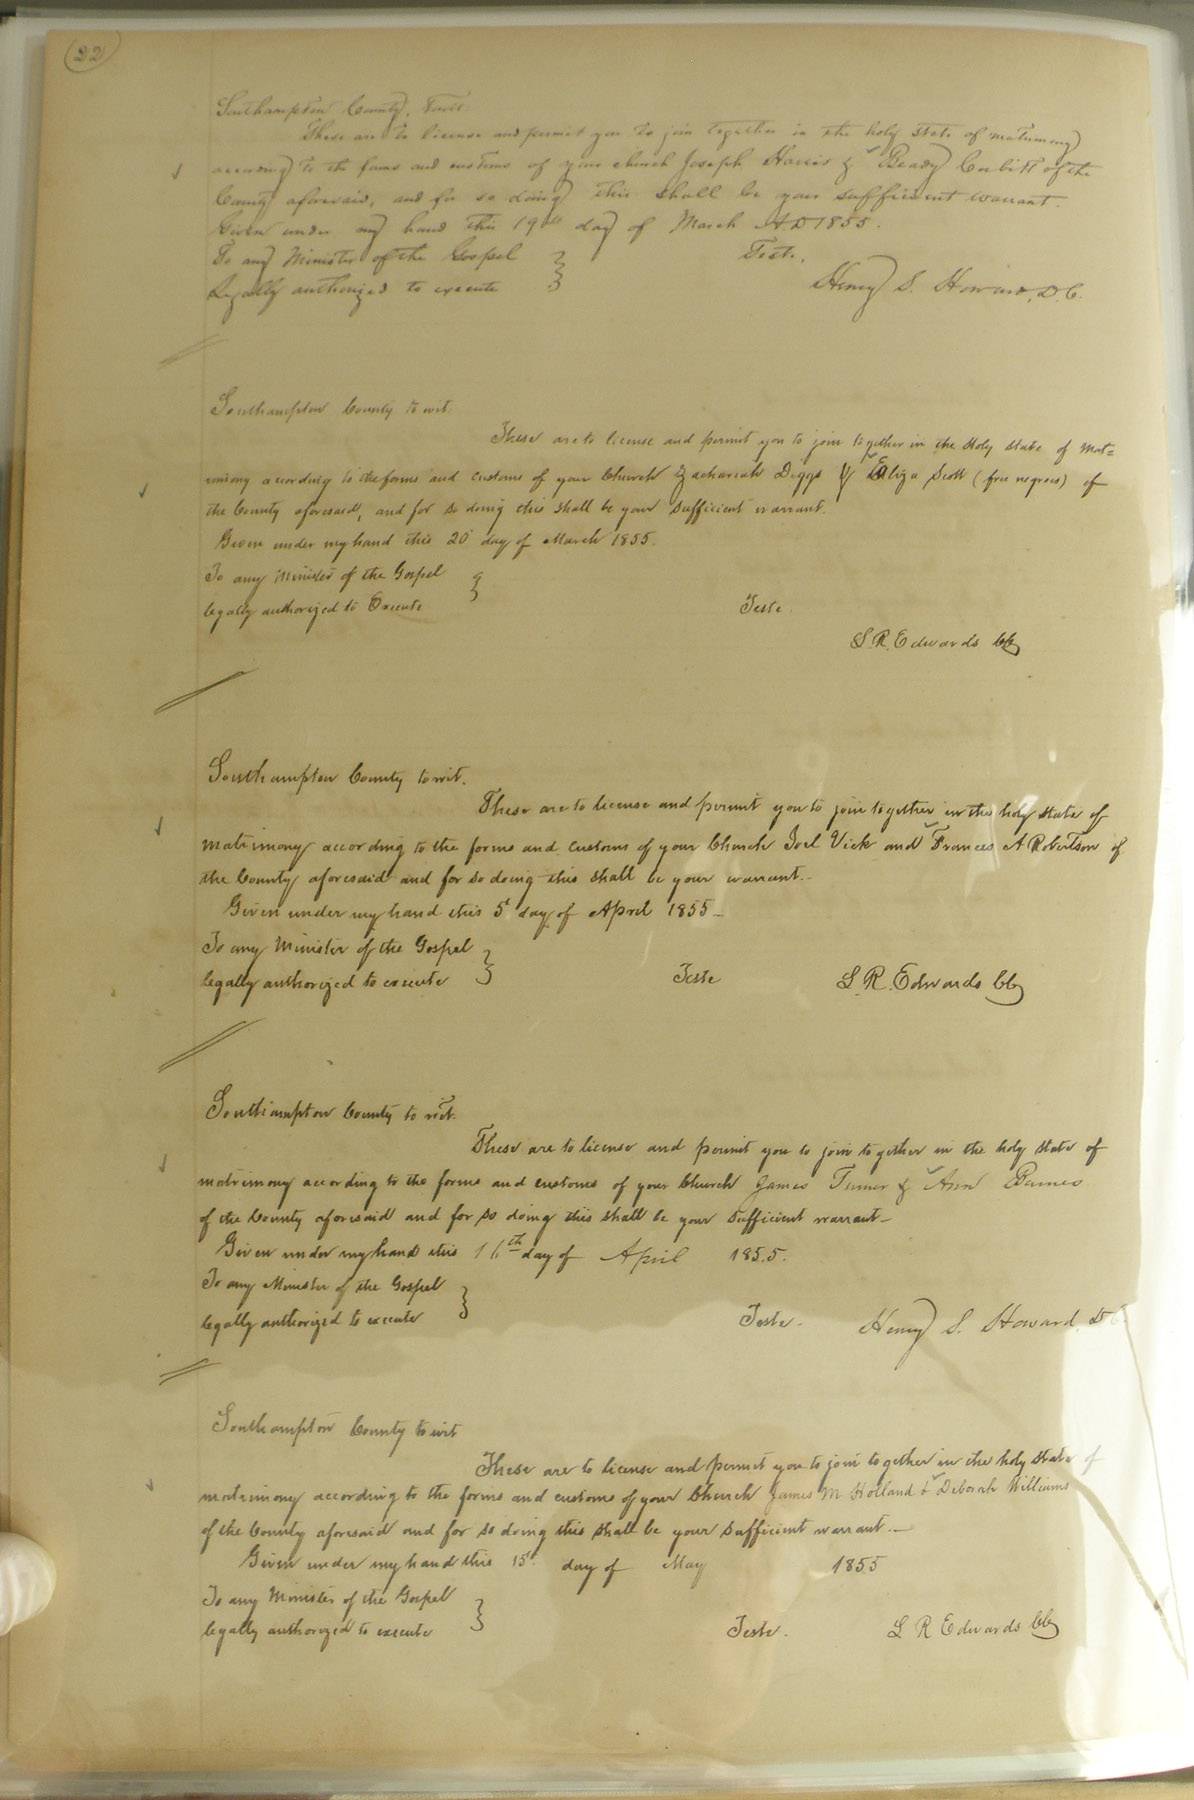 22
Southampton County, Towit
These are to license and permit you to join together in the holy state of matrimony
according to the forms and customs of your church Joseph Harris & Beady Corbitt of the
County aforesaid, and for so doing this shall be your sufficient warrant.
Given under my hand this 19th day of March A.D 1855.
To any Minister of the Gospel
legally authorized to execute
Teste,
Henry S. Howard, D.C.
Southampton County to wit.
These are to license and permit you to join together in the Holy state of Mat=
rimony according to the forms and customs of your Church Zachariah Diggs & Eliza Scott (free negroes) of
the County aforesaid, and for so doing this shall be your sufficient warrant.
Given under my hand this 20 day of March 1855.
To any Minister of the Gospel
legally authorized to Execute
Teste
L. R. Edwards CC
Southampton County to wit.
These are to license and permit you to join together in the holy state of
matrimony according to the forms and customs of your Church Joel Vick and Frances A Robertson of
the County aforesaid and for so doing this shall be your warrant.-
Given under my hand this 5t day of April 1855-
To any Minister of the Gospel
legally authorized to execute
Teste
L. R. Edwards CC
Southampton County to wit.
These are to license and permit you to join together in the holy state of
matrimony according to the forms and customs of your Church James Turner & Ann Barnes
of the County aforesaid and for so doing this shall be your sufficient warrant-
Given under my hand this 16th day of April 1855.
To any Minister of the Gospel
legally authorized to execute
Teste.
Henry S. Howard, D C.
Southampton County to wit
These are to license and permit you to join together in the holy state of
matrimony according to the forms and customs of your Church James M Holland & Deborah Williams
of the County aforesaid and for so doing this shall be your sufficient warrant.-
Given under my hand this 15t day of May 1855
To any Minister of the Gospel
legally authorized to execute
Teste.
L R Edwards CC